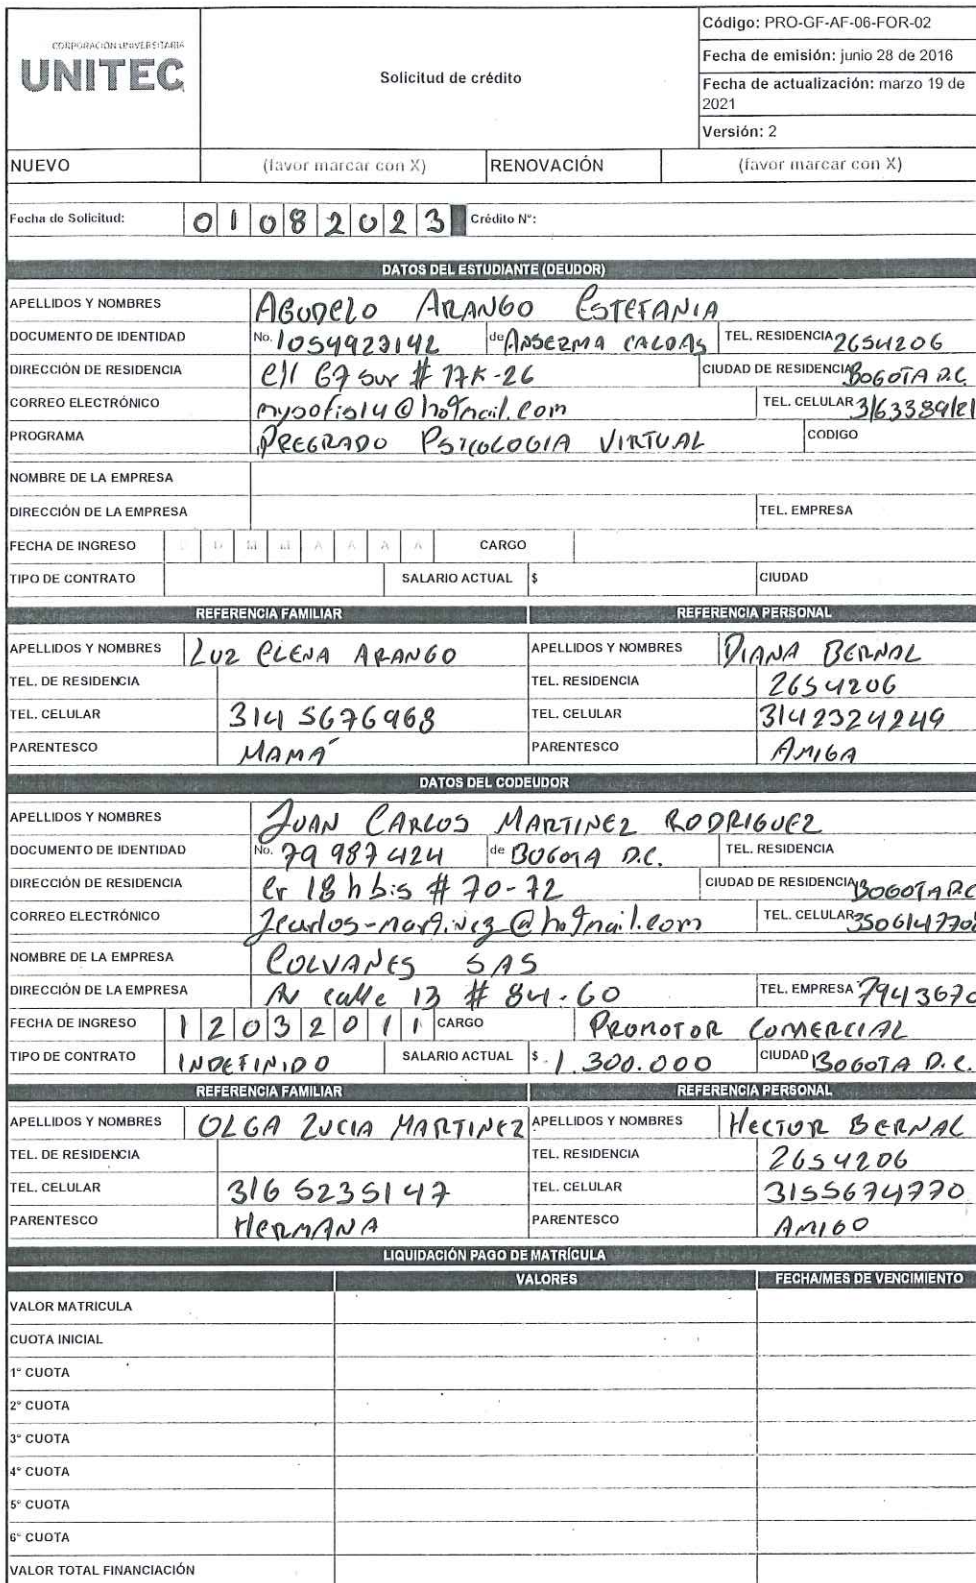 CORPORACIÓN UNIVERSITARIA
UNITEC
Solicitud de crédito
Código: PRO-GF-AF-06-FOR-02
Fecha de emisión: junio 28 de 2016
Fecha de actualización: marzo 19 de 2021
Versión: 2
NUEVO (favor marcar con X) RENOVACIÓN (favor marcar con X)
Fecha de Solicitud: 0 1 0 8 2 0 2 3 Crédito N°:
DATOS DEL ESTUDIANTE (DEUDOR)
APELLIDOS Y NOMBRES AGUDELO ARANGO ESTEFANIA
DOCUMENTO DE IDENTIDAD No. 1054923142 de ANSERMA CALDAS TEL. RESIDENCIA 2654206
DIRECCIÓN DE RESIDENCIA Cll 67 sur # 77K-26 CIUDAD DE RESIDENCIA BOGOTA D.C.
CORREO ELECTRÓNICO mysofis14@hotmail.com TEL. CELULAR 3163389121
PROGRAMA PREGRADO PSICOLOGIA VIRTUAL CODIGO
NOMBRE DE LA EMPRESA
DIRECCIÓN DE LA EMPRESA TEL. EMPRESA
FECHA DE INGRESO D D M M A A A A CARGO
TIPO DE CONTRATO SALARIO ACTUAL $ CIUDAD
REFERENCIA FAMILIAR REFERENCIA PERSONAL
APELLIDOS Y NOMBRES LUZ ELENA ARANGO APELLIDOS Y NOMBRES DIANA BERNAL
TEL. DE RESIDENCIA TEL. RESIDENCIA 2654206
TEL. CELULAR 314 5676968 TEL. CELULAR 3142324249
PARENTESCO MAMÁ PARENTESCO AMIGA
DATOS DEL CODEUDOR
APELLIDOS Y NOMBRES JUAN CARLOS MARTINEZ RODRIGUEZ
DOCUMENTO DE IDENTIDAD No. 79 987 424 de BOGOTA D.C. TEL. RESIDENCIA
DIRECCIÓN DE RESIDENCIA Cr 18 h bis # 70-72 CIUDAD DE RESIDENCIA BOGOTA D.C
CORREO ELECTRÓNICO Jcarlos-martinez@hotmail.com TEL. CELULAR 3506147708
NOMBRE DE LA EMPRESA COLVANES SAS
DIRECCIÓN DE LA EMPRESA AV calle 13 # 84-60 TEL. EMPRESA 7943670
FECHA DE INGRESO 1 2 0 3 2 0 1 1 CARGO PROMOTOR COMERCIAL
TIPO DE CONTRATO INDEFINIDO SALARIO ACTUAL $ 1.300.000 CIUDAD BOGOTA D.C.
REFERENCIA FAMILIAR REFERENCIA PERSONAL
APELLIDOS Y NOMBRES OLGA LUCIA MARTINEZ APELLIDOS Y NOMBRES HECTOR BERNAL
TEL. DE RESIDENCIA TEL. RESIDENCIA 2654206
TEL. CELULAR 316 5235147 TEL. CELULAR 3155674770
PARENTESCO HERMANA PARENTESCO AMIGO
LIQUIDACIÓN PAGO DE MATRÍCULA
VALORES FECHA/MES DE VENCIMIENTO
VALOR MATRICULA
CUOTA INICIAL
1° CUOTA
2° CUOTA
3° CUOTA
4° CUOTA
5° CUOTA
6° CUOTA
VALOR TOTAL FINANCIACIÓN